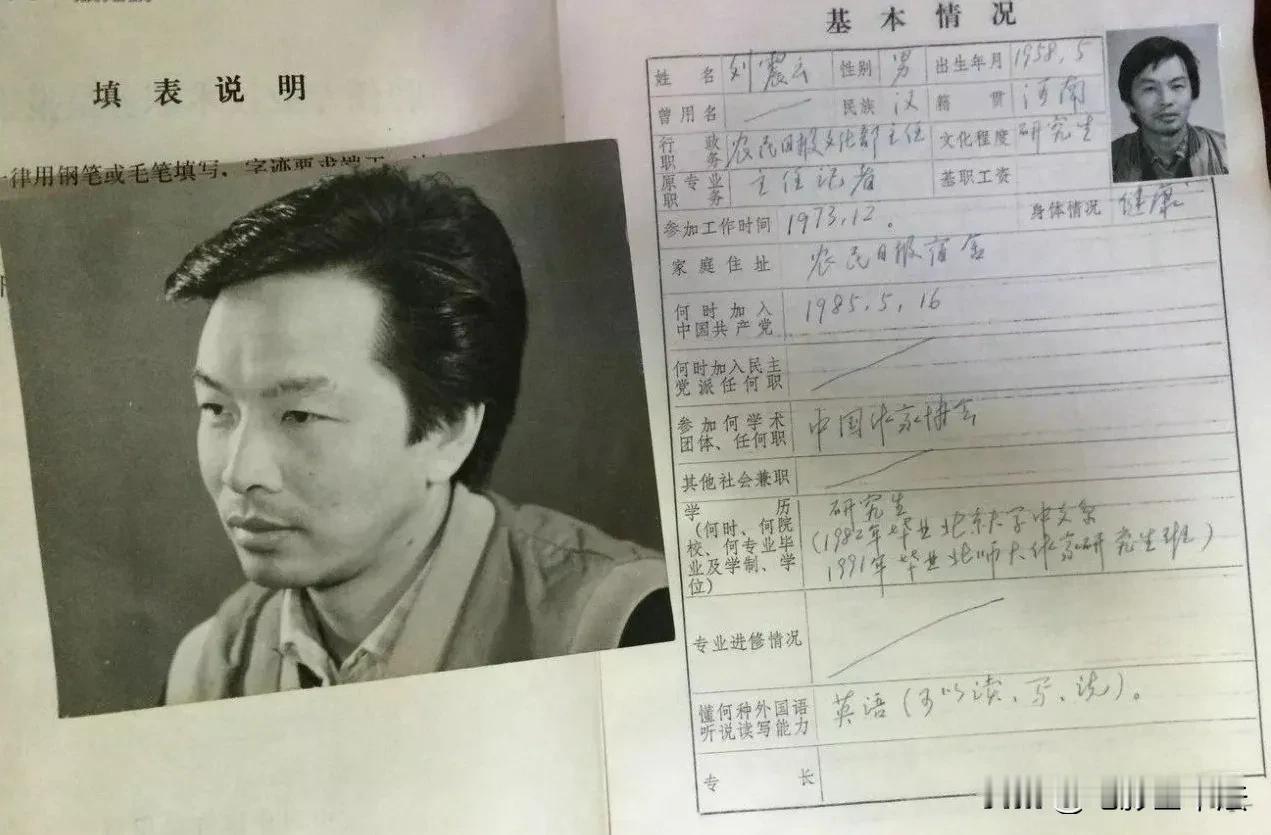 填表说明
一律用钢笔或毛笔填写，字迹要求端正
基本情况
姓名 刘震云 性别 男 出生年月 1958.5
曾用名 民族 汉 籍贯 河南
行政职务 农民日报文化部主任 文化程度 研究生
原专业职务 主任记者 基职工资
参加工作时间 1973.12。 身体情况 健康
家庭住址 农民日报宿舍
何时加入
中国共产党 1985.5.16
何时加入民主
党派任何职
参加何学术
团体、任何职 中国作家协会
其他社会兼职
学历 研究生
(何时、何院 (1982年毕业北京大学中文系
校、何专业毕 1991年毕业北师大作家研究生班)
业及学制、学
位)
专业进修情况
懂何种外国语
听说读写能力 英语(可以读、写、说)。
专长